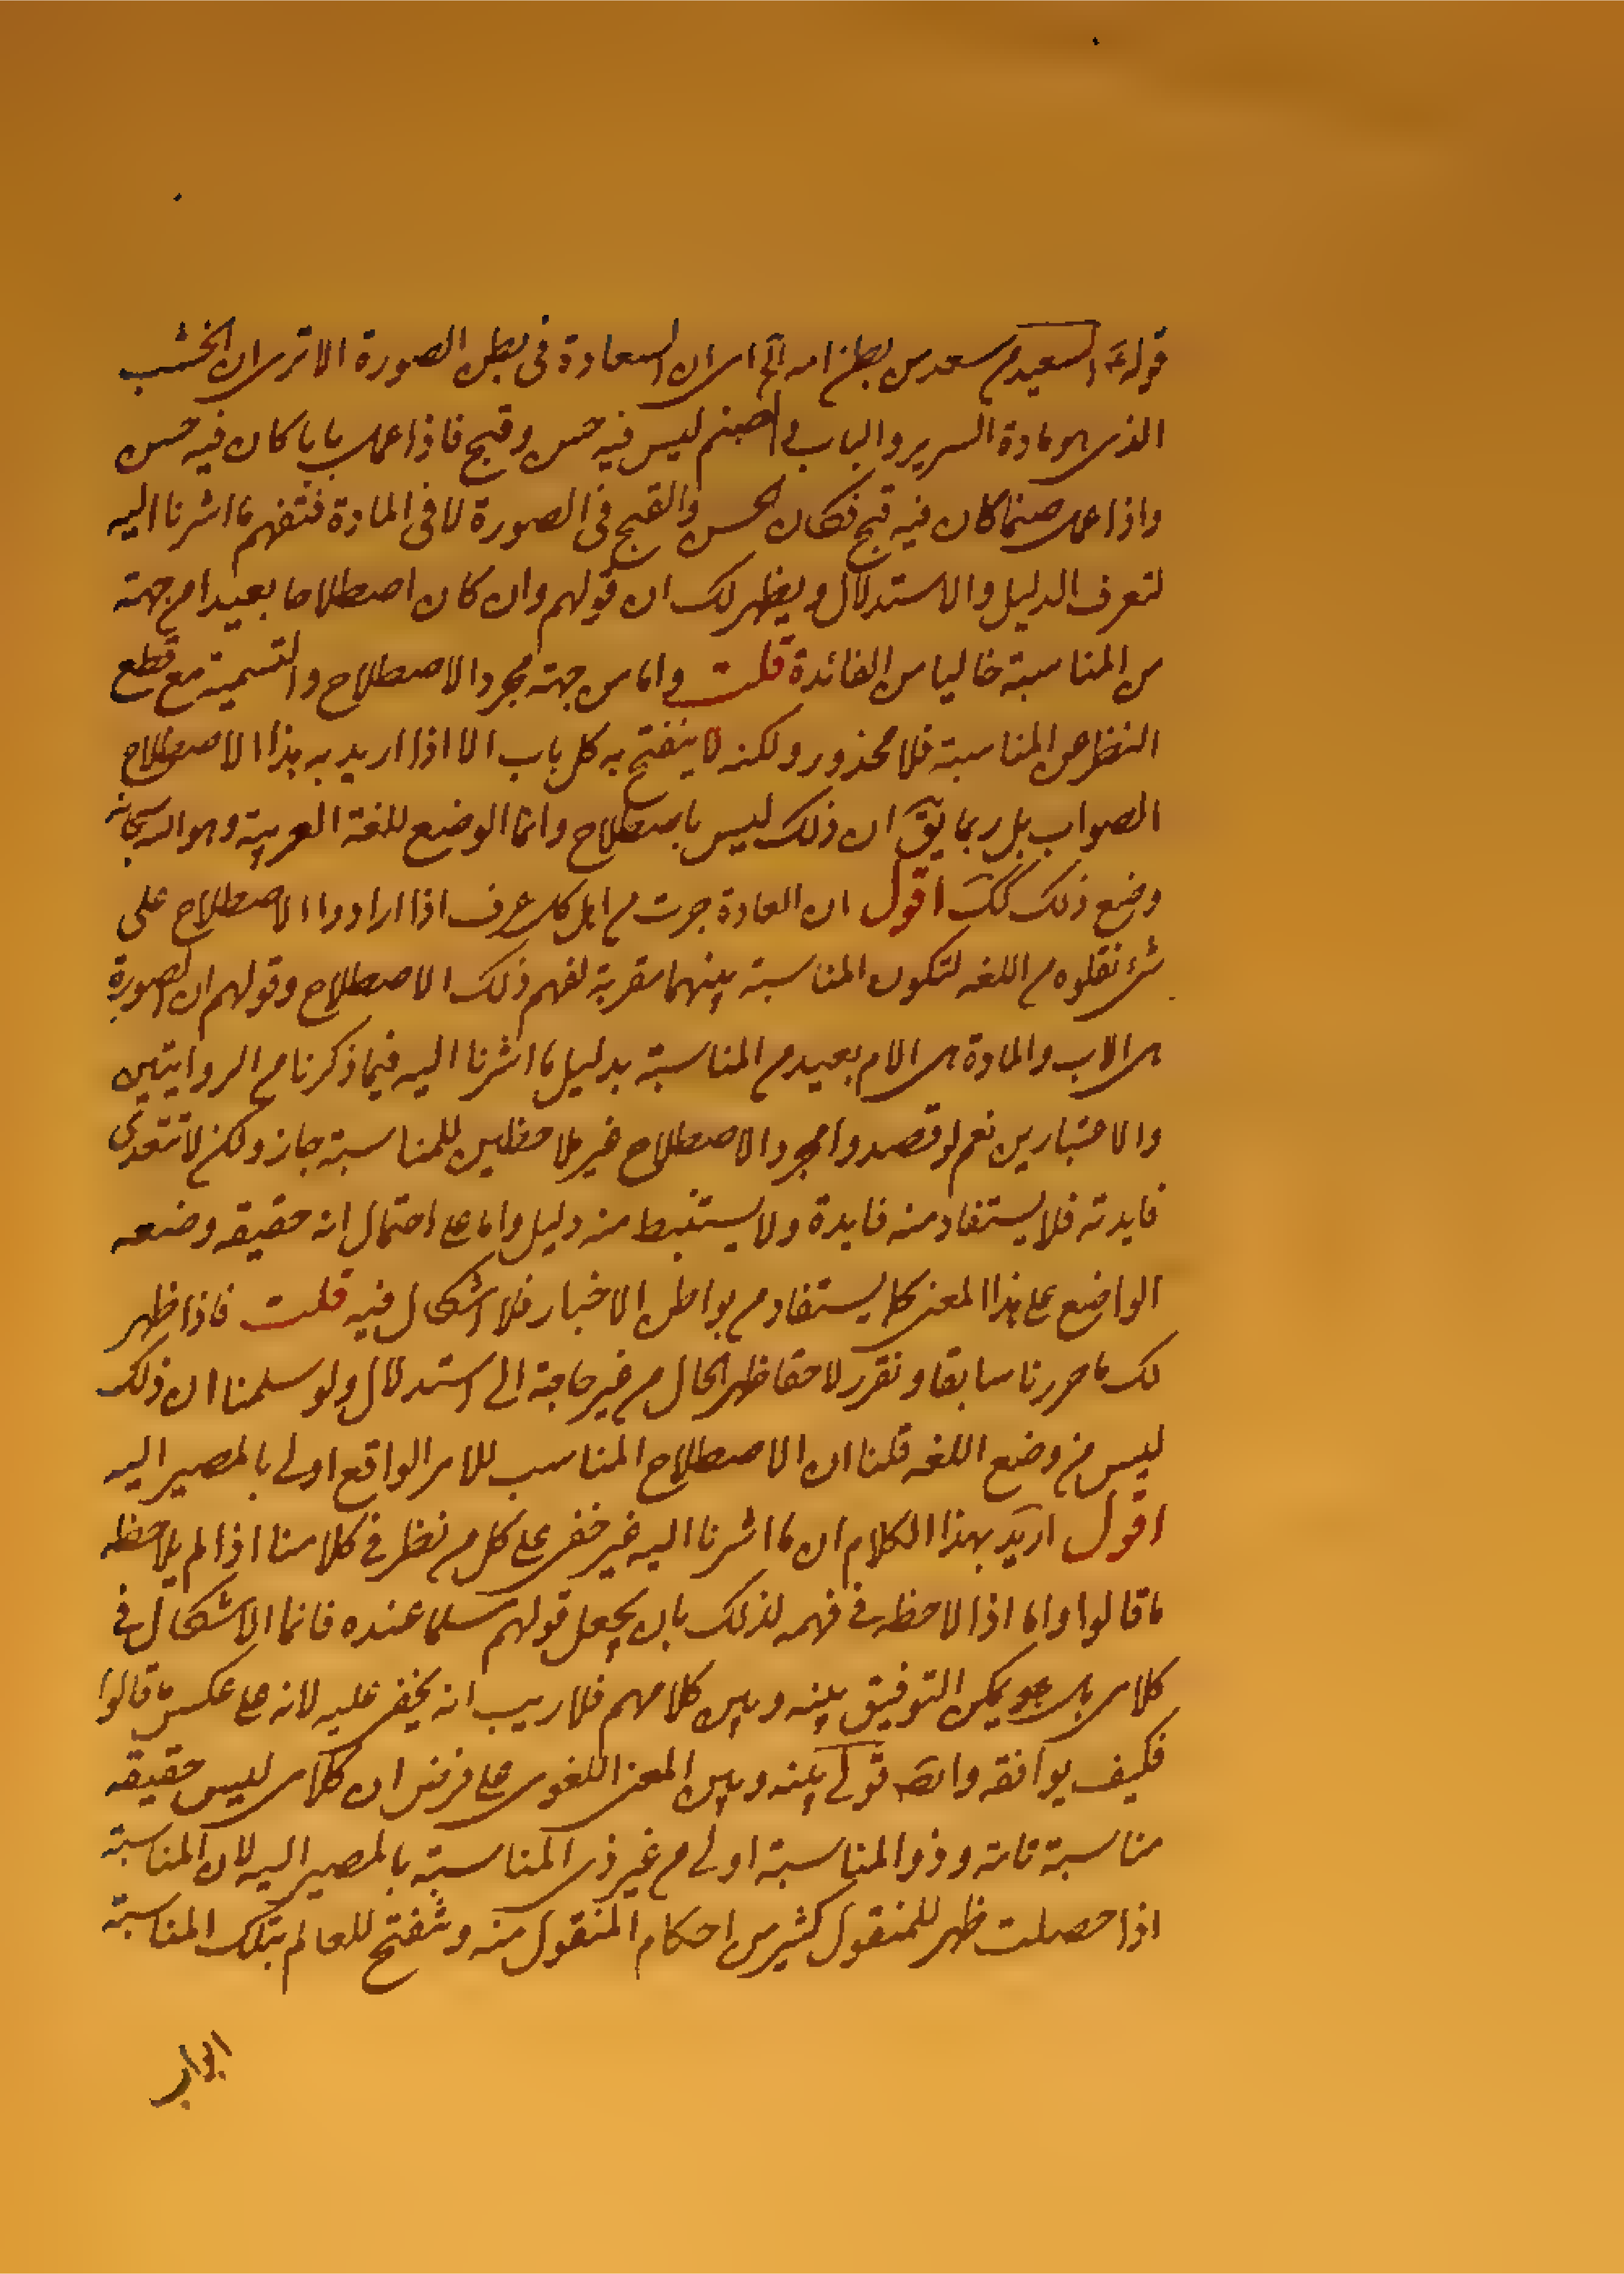 قوله ع السعيد من سعد من بطن امه الخ اى ان السعادة فى بطن الصورة الا ترى ان الخشب
الذى هو مادة السرير والباب والصنم ليس فيه حسن وقبح فاذا عمل بابا كان فيه حسن
واذا عمل صنما كان فيه قبح فكان الحسن والقبح فى الصورة لا فى المادة فتفهم ما اشرنا اليه
لتعرف الدليل والاستدلال ويظهر لك ان قولهم وان كان اصطلاحا بعيدا من جهة
من المناسبة خاليا من الفائدة قلت واما من جهة مجرد الاصطلاح والتسمية مع قطع
النظر عن المناسبة فلا محذور ولكنه لا ينفتح به كل باب الا اذا اريد به هذا الاصطلاح
الصواب بل ربما يق ان ذلك ليس باصطلاح وانما الوضع للغة العربية وهو الله سبحانه
وضع ذلك كك اقول ان العادة جرت من اهل كل عرف اذا ارادوا الاصطلاح على
شئ نقلوه من اللغه لتكون المناسبة بينهما مقربة لفهم ذلك الاصطلاح وقولهم ان الصورة
هى الاب والمادة هى الام بعيد من المناسبة بدليل ما اشرنا اليه فيما ذكرنا من الروايتين
والاعتبارين نعم لو قصدوا مجرد الاصطلاح غير ملاحظين للمناسبة جاز ولكن لا تتعدى
فايدته فلا يستفاد منه فايدة ولا يستنبط منه دليل واما على احتمال انه حقيقه وضعه
الواضع على هذا المعنى كما يستفاد من بواطن الاخبار فلا اشكال فيه قلت فاذا ظهر
لك ما حررنا سابقا ونقرر لاحقا ظهر الحال من غير حاجة الى استدلال ولو سلمنا ان ذلك
ليس من وضع اللغه قلنا ان الاصطلاح المناسب للامر الواقع اولى بالمصير اليه
اقول اريد بهذا الكلام ان ما اشرنا اليه غير خفى على كل من نظر فى كلامنا اذا لم يلاحظ
ما قالوا واما اذا لاحظه فى فهمه لذلك بان يجعل قولهم مسلما عنده فانما الاشكال فى
كلامى بل هو يمكن التوفيق بينه وبين كلامهم فلا ريب انه يخفى عليه لانه على عكس ما قالوا
فكيف يوافقه وايضا قولى بينه وبين المعنى اللغوى على فرض ان كلامى ليس حقيقه
مناسبة تامة وذو المناسبة اولى من غير ذى المناسبة بالمصير اليه لان المناسبة
اذا حصلت ظهر للمنقول كثير من احكام المنقول منه وتفتح للعالم بتلك المناسبة
ابواب